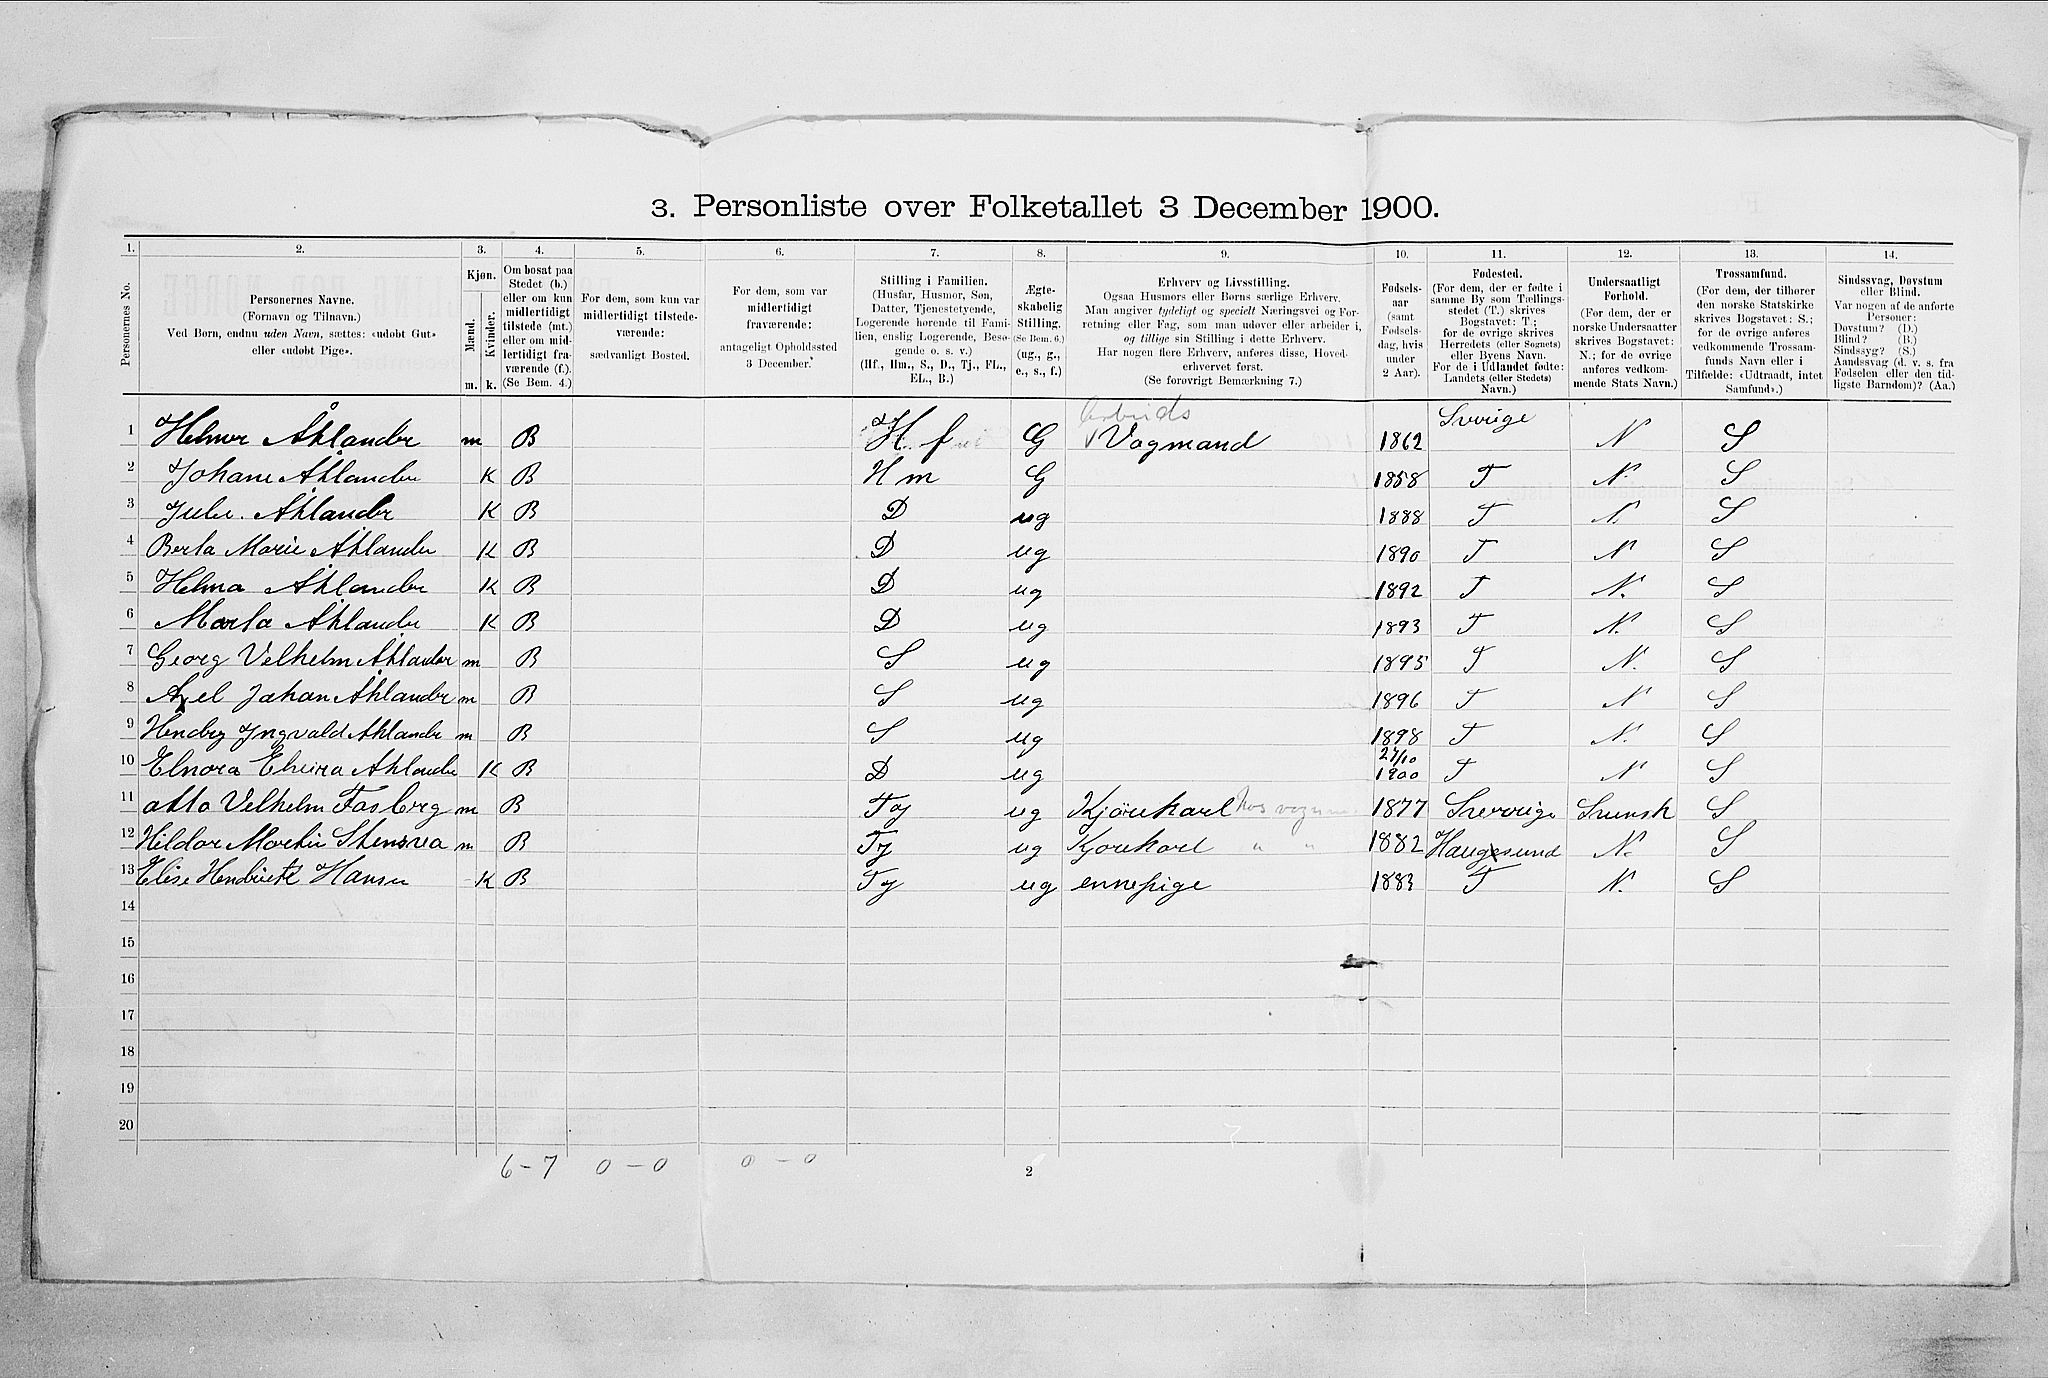 3. Personliste over Folketallet 3 December 1900.
1. 2. 3. 4. 5. 6. 7. 8. 9. 10. 11. 12. 13. 14.
Personernes No.
Personernes Navne.
(Fornavn og Tilnavn.)
Ved Børn, endnu uden Navn, sættes: «udøbt Gut»
eller «udøbt Pige».
Kjøn.
Mænd. Kvinder.
m. k.
Om bosat paa
Stedet (b.)
eller om kun
midlertidigt
tilstede (mt.)
eller om mid-
lertidigt fra-
værende (f.).
(Se Bem. 4.)
For dem, som kun var
midlertidigt tilstede-
værende:
sædvanligt Bosted.
For dem, som var
midlertidigt
fraværende:
antageligt Opholdssted
3 December.
Stilling i Familien.
(Husfar, Husmor, Søn,
Datter, Tjenestetyende,
Logerende hørende til Fami-
lien, enslig Logerende, Besø-
gende o. s. v.)
(Hf., Hm., S., D., Tj., FL.,
EL., B.)
Ægte-
skabelig
Stilling.
(Se Bem. 6.)
(ug., g.,
e., s., f.)
Erhverv og Livsstilling.
Ogsaa Husmors eller Børns særlige Erhverv.
Man angiver tydeligt og specielt Næringsvei og For-
retning eller Fag, som man udøver eller arbeider i,
og tillige sin Stilling i dette Erhverv.
Har nogen flere Erhverv, anføres disse, Hoved-
erhvervet først.
(Se forøvrigt Bemærkning 7.)
Fødsels-
aar
(samt
Fødsels-
dag, hvis
under
2 Aar).
Fødested.
(For dem, der er fødte i
samme By som Tællings-
stedet (T.) skrives
Bogstavet: T;
for de øvrige skrives
Herredets (eller Sognets)
eller Byens Navn.
For de i Udlandet fødte:
Landets (eller Stedets)
Navn.)
Undersaatligt
Forhold.
(For dem, der er
norske Undersaatter
skrives Bogstavet:
N.; for de øvrige
anføres vedkom-
mende Stats Navn.)
Trossamfund.
(For dem, der tilhører
den norske Statskirke
skrives Bogstavet: S.;
for de øvrige anføres
vedkommende Trossam-
funds Navn eller i
Tilfælde: «Udtraadt, intet
Samfund».)
Sindssvag, Døvstum
eller Blind.
Var nogen af de anførte
Personer:
Døvstum? (D.)
Blind? (B.)
Sindssyg? (S.)
Aandssvag (d. v. s. fra
Fødselen eller den tid-
ligste Barndom)? (Aa.)
Arbeids
1 Helmer Åhlander m B H. f G Vogmand 1862 Sverige N S
2 Johane Åhlander K B H m G 1858 T N. S
3 Julie. Åhlander K B D ug 1888 T N. S
4 Berta Marie Åhlander K B D ug 1890 T N S
5 Helma Åhlander K B D ug 1892 T N. S
6 Marta Åhlander K B D ug 1893 T N. S
7 Georg Velhelm Åhlander m B S ug 1895 T N. S
8 Axel Johan Åhlander m B S ug 1896 T N S
9 Ingvald Ahlander m B S ug 1898 T N. S
27/10
10 Elnora Elvira Ahlander K B D ug 1900 T N S
11 Otto Velhelm Fasberg m B Tj ug Kjørekarl hos 1877 Sverrige Svensk S
12 Hildor Martin Stensvea m B Tj ug Kjørekarl " " 1882 Haugesund N. S
13 Elise Hendriette Hansen K B Tj ug ennepige 1883 T N. S
14
15
16
17
18
19
20
6 - 7 0 - 0 0 - 0
2